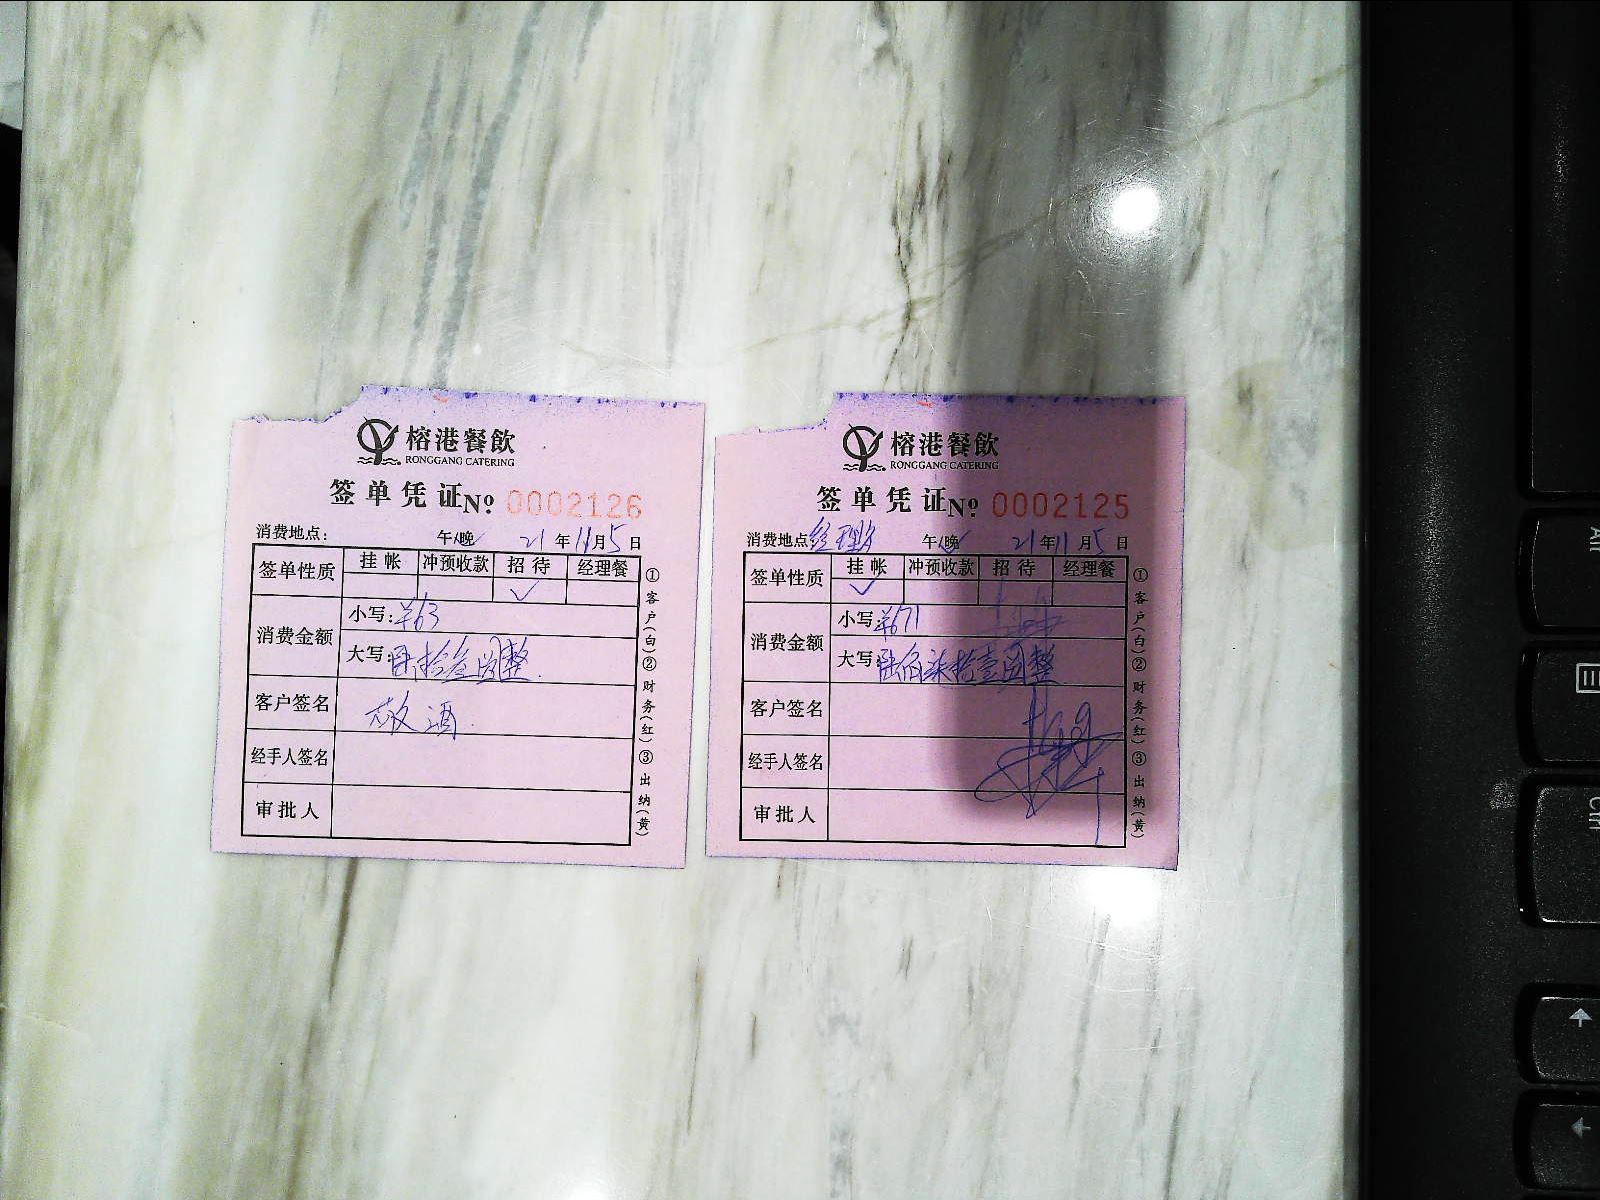 榕港餐飲
RONGGANG CATERING
签单凭证 № 0002126
消费地点: 午/晚 21年11月5日
签单性质 挂帐 冲预收款 招待 经理餐
✓
消费金额
小写: ¥63
大写: 陆拾叁圆整
客户签名 敬酒
经手人签名
审批人
①客户(白)②财务(红)③出纳(黄)
榕港餐飲
RONGGANG CATERING
签单凭证 № 0002125
消费地点: 午/晚 21年11月5日
签单性质 挂帐 冲预收款 招待 经理餐
✓
消费金额
小写: ¥671
大写: 陆佰柒拾壹圆整
客户签名
经手人签名
审批人
①客户(白)②财务(红)③出纳(黄)
Alt
Ctrl